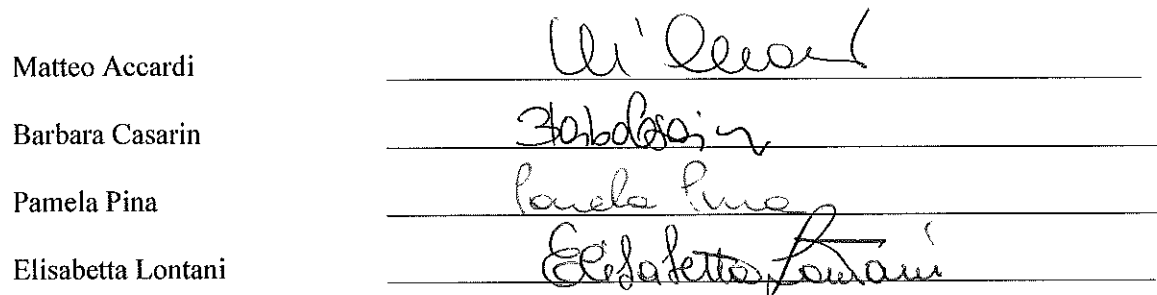 Matteo Accardi
Barbara Casarin
Pamela Pina Pamela Pina
Elisabetta Lontani Elisabetta Lontani